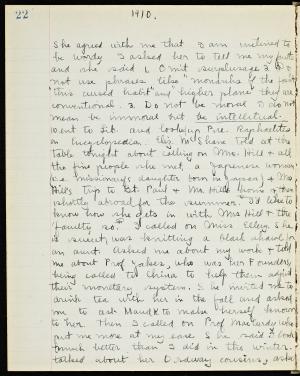 22
1910.
She agreed with me that I am inclined to
be wordy. I asked her to tell me my faults
and she said 1. Omit surplusage 2. Do
not use phrases like "monarchs of the
"this cursed habit" and "higher plane" they are
conventional. 3. Do not be moral I do not
mean be immoral but be intellectual.
Went to Lit. and looked up Pre. Raphaelites
in Encyclopedia. Shane told at the
table tonight about calling on Mrs. Hill & all
the fine people she met. a Japanese woman
(i.e. missionary's daughter born in Japan) & Mrs.
Hill's trip to St. Paul & Mr. Hill's
shortly abroad for the summer. I'd like to
know how she gets in with Mrs Hill & the
faculty so. I called on Miss Elley. She
is sweet, was knitting a black shawl for
an aunt. Asked me about my work & told
me about Prof. who was her Founders
being called to China to help them adjust
their monetary system. She invited me to
drink tea with her in the fall and asked
me to ask Maud to make herself known
to her. Then I called on Prof. who
put me more at my ease. She said I look
much better than I did in the winter.
talked about her Ordway cousins, asked